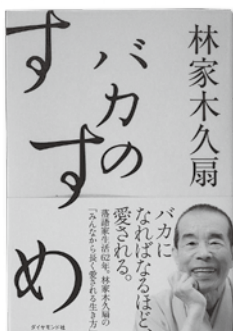 林家木久扇
バカの
すすめ
バカに
なればなるほど、
愛される。
落語家生活62年、林家木久扇の
「みんなから長く愛される生き方」
ダイヤモンド社